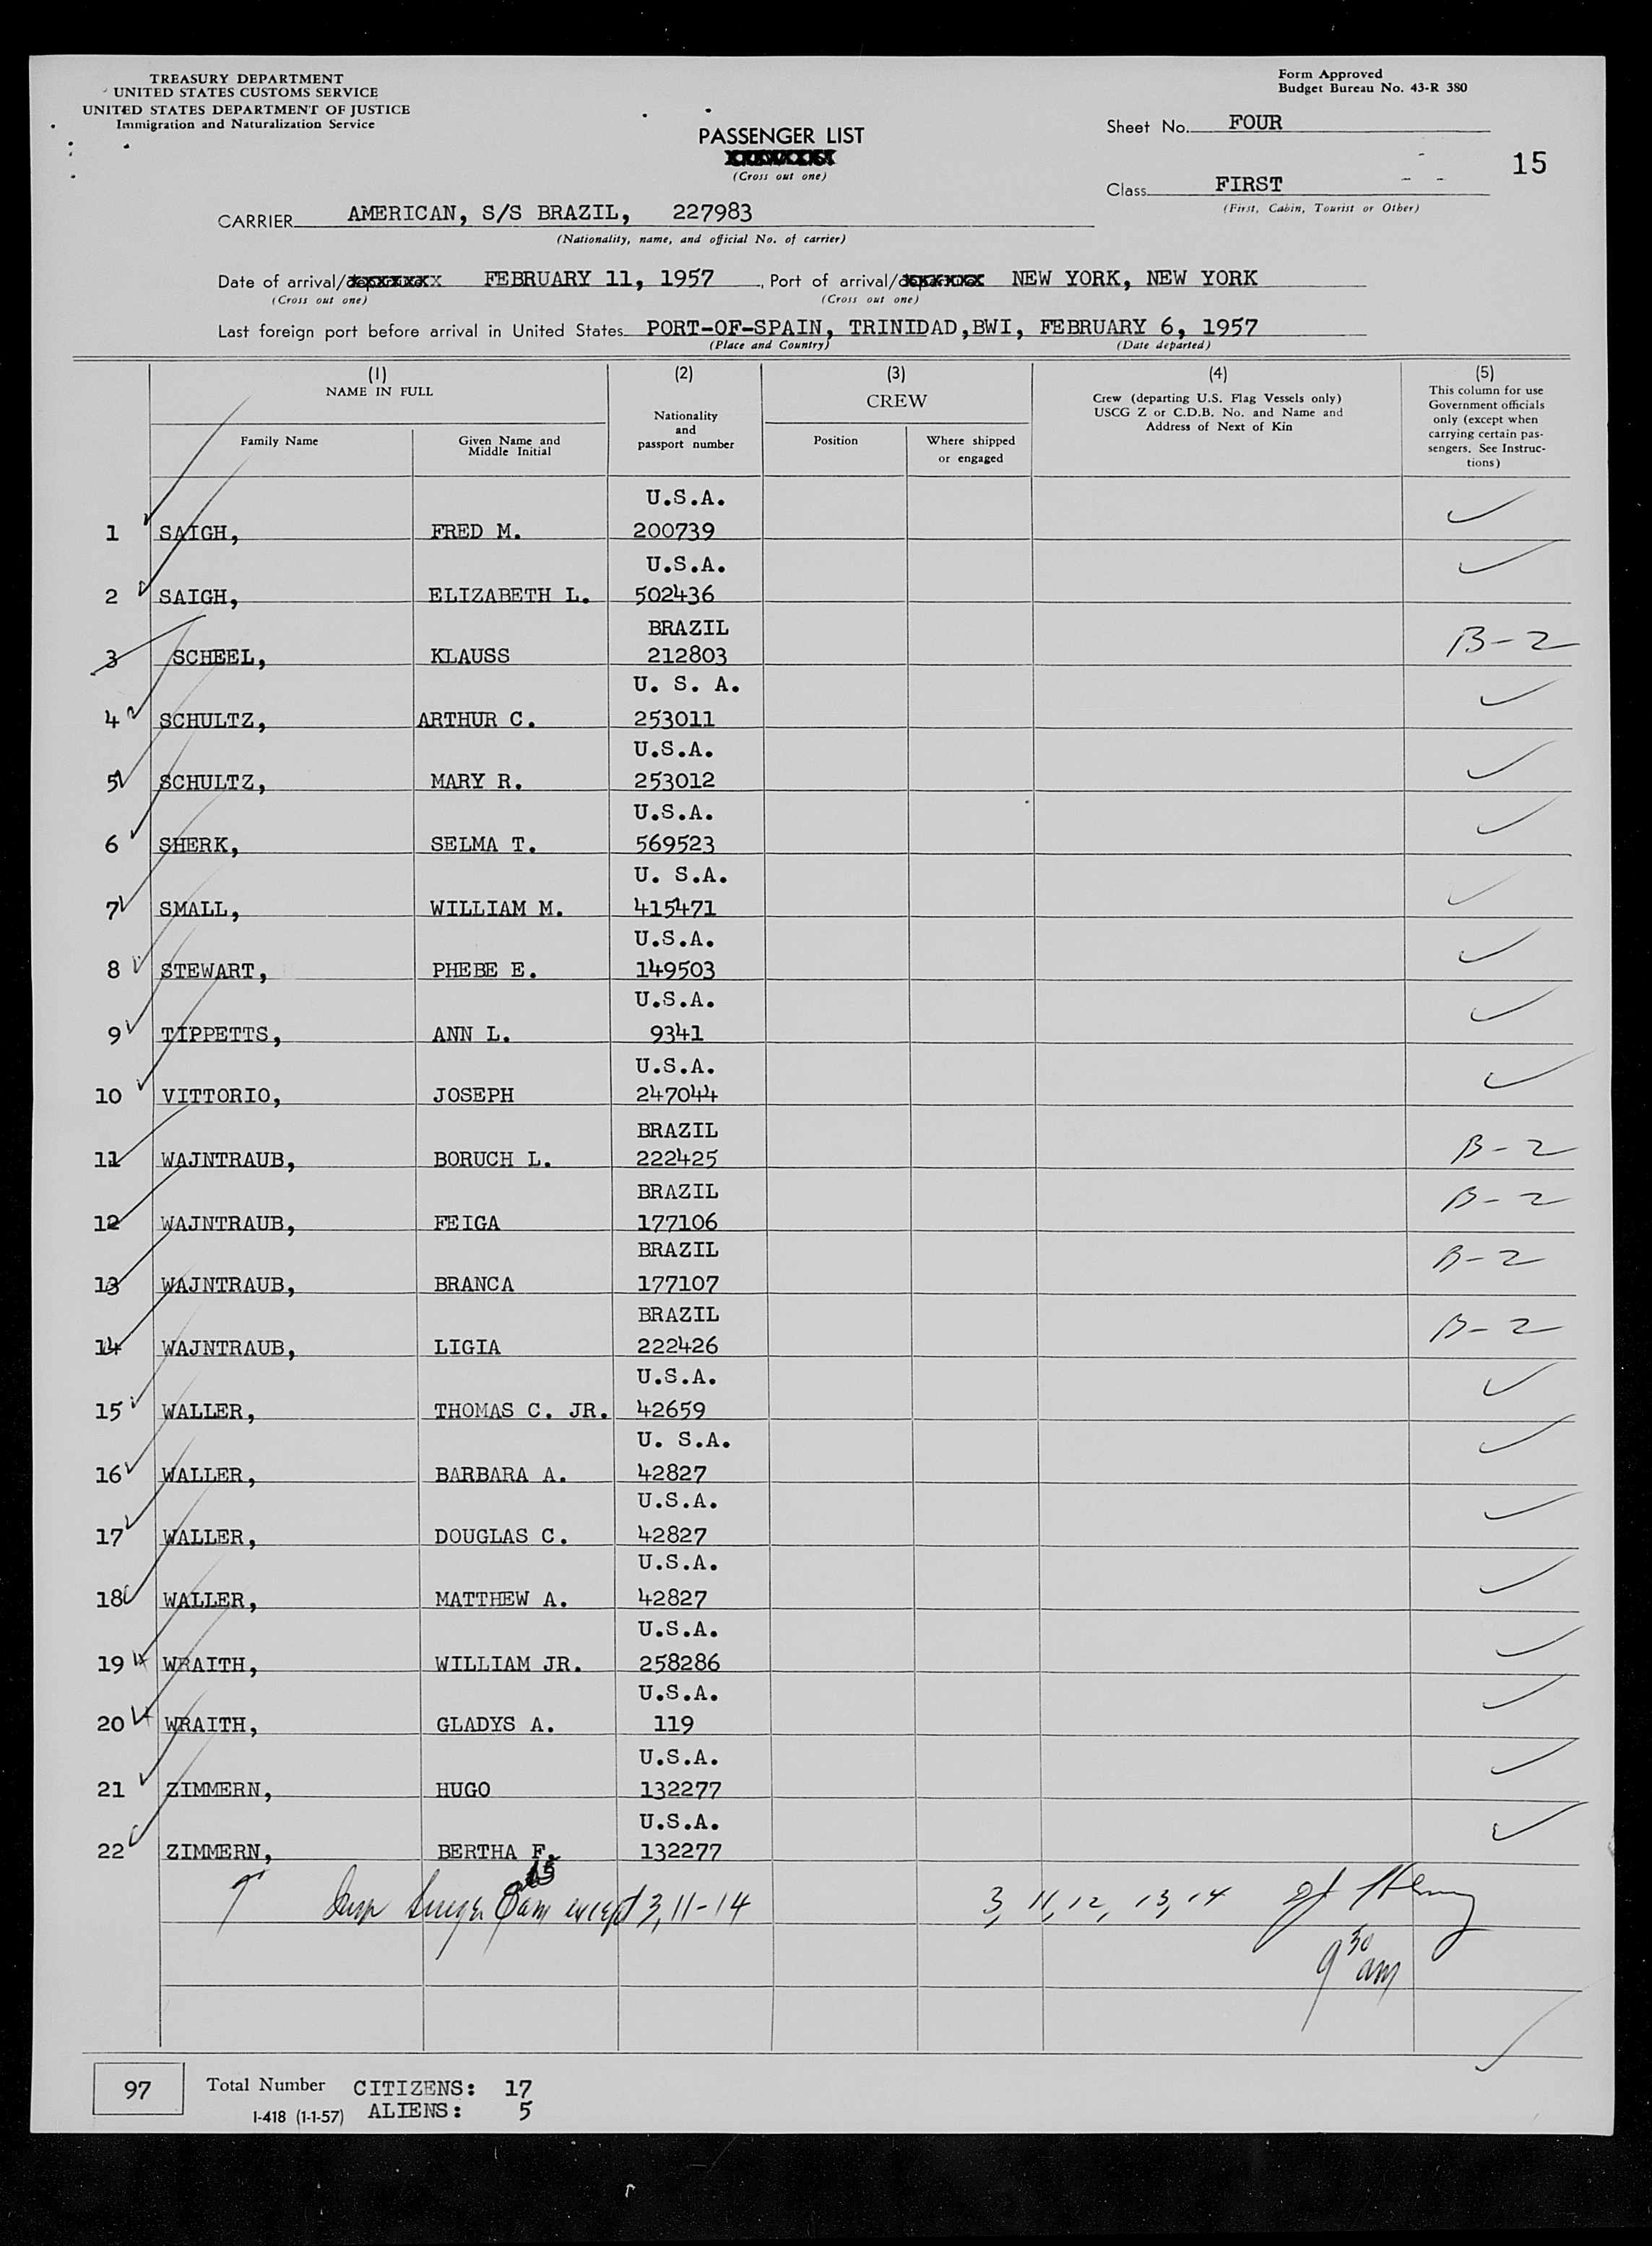 TREASURY DEPARTMENT
UNITED STATES CUSTOMS SERVICE
UNITED STATES DEPARTMENT OF JUSTICE
Immigration and Naturalization Service
Form Approved
Budget Bureau No. 43-R 380
PASSENGER LIST
(Cross out one)
Sheet No. FOUR
15
Class FIRST
(First, Cabin, Tourist or Other)
CARRIER AMERICAN, S/S BRAZIL, 227983
(Nationality, name, and official No. of carrier)
Date of arrival/ FEBRUARY 11, 1957, Port of arrival/ NEW YORK, NEW YORK
(Cross out one) (Cross out one)
Last foreign port before arrival in United States PORT-OF-SPAIN, TRINIDAD,BWI, FEBRUARY 6, 1957
(Place and Country) (Date departed)
(1) (2) (3) (4) (5)
NAME IN FULL
Family Name
Given Name and Middle Initial
Nationality and passport number
CREW
Position
Where shipped or engaged
Crew (departing U.S. Flag Vessels only)
USCG Z or C.D.B. No. and Name and
Address of Next of Kin
This column for use
Government officials
only (except when
carrying certain pas-
sengers. See Instruc-
tions)
U.S.A.
1 SAIGH, FRED M. 200739
U.S.A.
2 SAIGH, ELIZABETH L. 502436
BRAZIL B-2
3 SCHEEL, KLAUSS 212803
U. S. A.
4 SCHULTZ, ARTHUR C. 253011
U.S.A.
5 SCHULTZ, MARY R. 253012
U.S.A.
6 SHERK, SELMA T. 569523
U. S.A.
7 SMALL, WILLIAM M. 415471
U.S.A.
8 STEWART, PHEBE E. 149503
U.S.A.
9 TIPPETTS, ANN L. 9341
U.S.A.
10 VITTORIO, JOSEPH 247044
BRAZIL B-2
11 WAJNTRAUB, BORUCH L. 222425
BRAZIL B-2
12 WAJNTRAUB, FEIGA 177106
BRAZIL B-2
13 WAJNTRAUB, BRANCA 177107
BRAZIL B-2
14 WAJNTRAUB, LIGIA 222426
U.S.A.
15 WALLER, THOMAS C. JR. 42659
U. S.A.
16 WALLER, BARBARA A. 42827
U.S.A.
17 WALLER, DOUGLAS C. 42827
U.S.A.
18 WALLER, MATTHEW A. 42827
U.S.A.
19 WRAITH, WILLIAM JR. 258286
U.S.A.
20 WRAITH, GLADYS A. 119
U.S.A.
21 ZIMMERN, HUGO 132277
U.S.A.
22 ZIMMERN, BERTHA F. 132277
except 3, 11-14 3, 11, 12, 13, 14
9 30 am
97 Total Number CITIZENS: 17
I-418 (1-1-57) ALIENS: 5